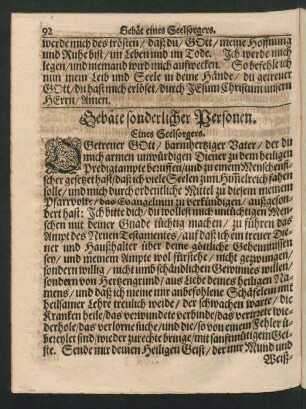 92 Gebät eines Seelsorgers.
werde mich des trösten / daß du / GOtt / meine Hoffnung
und Ruhe bist / im Leben und im Tode. Ich werde mich
legen / und niemand wird mich aufwecken. So befehle ich
nun mein Leib und Seele in deine Hände / du getreuer
GOtt / du hast mich erlöset / durch JEsum Christum unsern
HErrn / Amen.
Gebäte sonderlicher Personen.
Eines Seelsorgers.
O Getreuer GOtt / barmhertziger Vater / der du
mich armen unwürdigen Diener zu dem heiligen
Predigampte beruffen / und zu einem Menschenfi-
scher gesetzt hast / daß ich viele Seelen zum Himelreich fahen
solle / und mich durch ordentliche Mittel zu diesem meinem
Pfarrvolk / das Evangelium zu verkündigen / außgeson-
dert hast: Ich bitte dich / du wollest mich untüchtigen Men-
schen mit deiner Gnade tüchtig machen / zu führen das
Ampt des Neuen Testamentes / auf daß ich ein treuer Die-
ner und Haußhalter über deine göttliche Geheimnussen
sey / und meinem Ampte wol fürstehe / nicht gezwungen /
sondern willig / nicht umb schändlichen Gewinnes willen /
sondern von Hertzengrund / aus Liebe deines heiligen Na-
mens / und daß ich meine mir anbefohlene Schäfelein mit
heilsamer Lehre treulich weide / der schwachen warte / die
Kranken heile / das verwundete verbinde / das verirrete wie-
derhole / das verlorne suche / und die / so von einem Fehler ü-
bereylet sind / wieder zurechte bringe / mit sanftmütigem Gei-
ste. Sende mir deinen Heiligen Geist / der mir Mund und
Weiß-